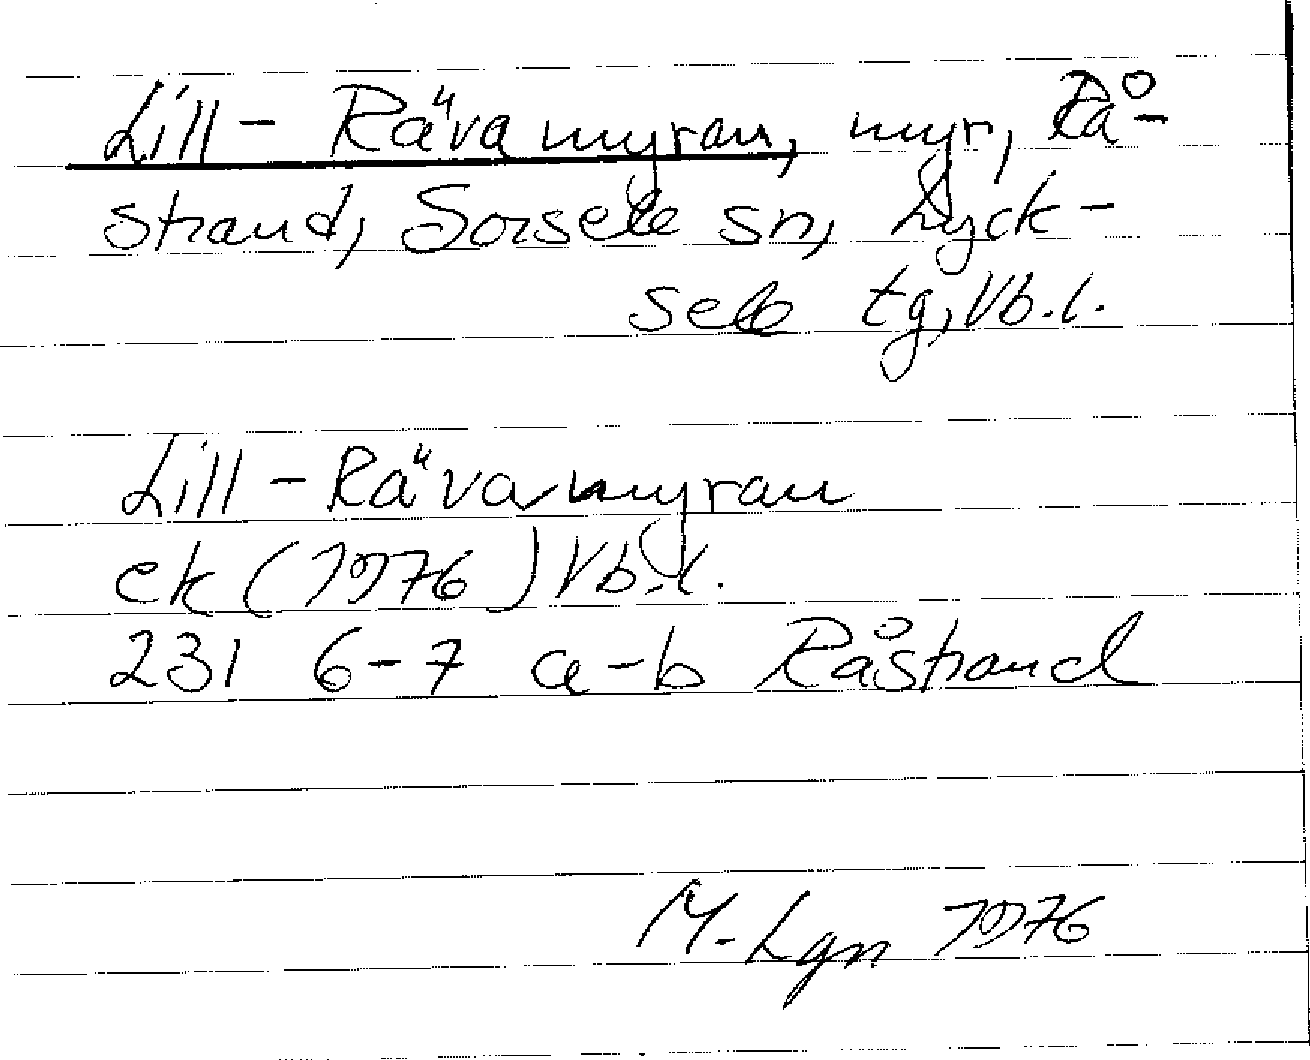 Lill-Rävamyran, myr, Rå-
strand, Sorsele sn, Lyck-
sele tg, Vb.l.
Lill-Rävamyran
ek (1976) Vb.l.
231 6-7 a-b Råstrand
M. Lgn 1976